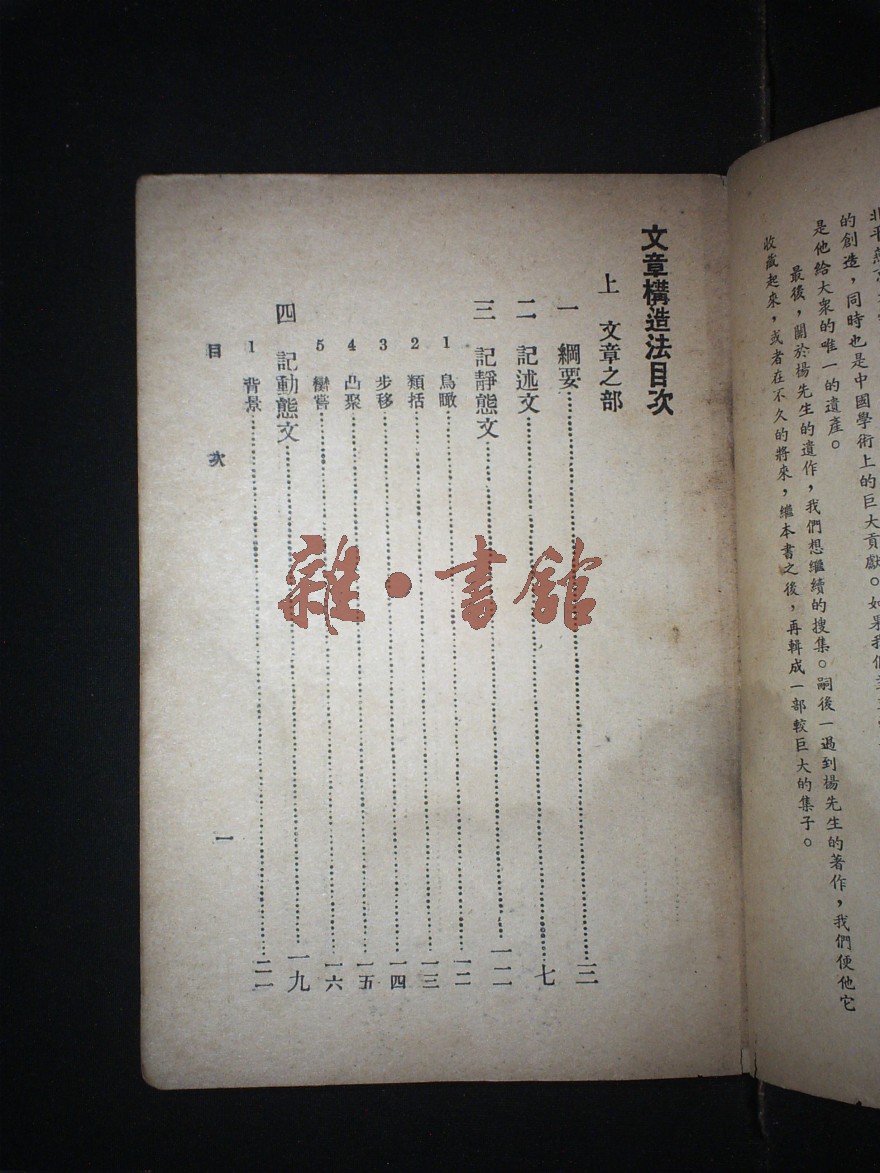 的創造，同時也是中國學術上的巨大貢獻。如果我們
是他給大衆的唯一的遺產。
最後，關於楊先生的遺作，我們想繼續的搜集。嗣後一遇到楊先生的著作，我們便他它
收藏起來，或者在不久的將來，繼本書之後，再輯成一部較巨大的集子。
文章構造法目次
上 文章之部
一 綱要……三
二 記述文……七
三 記靜態文……一二
1 鳥瞰……一二
2 類括……一三
3 步移……一四
4 凸聚……一五
5 臠嘗……一六
四 記動態文……一九
1 背景……二一
目次 一
雜·書館